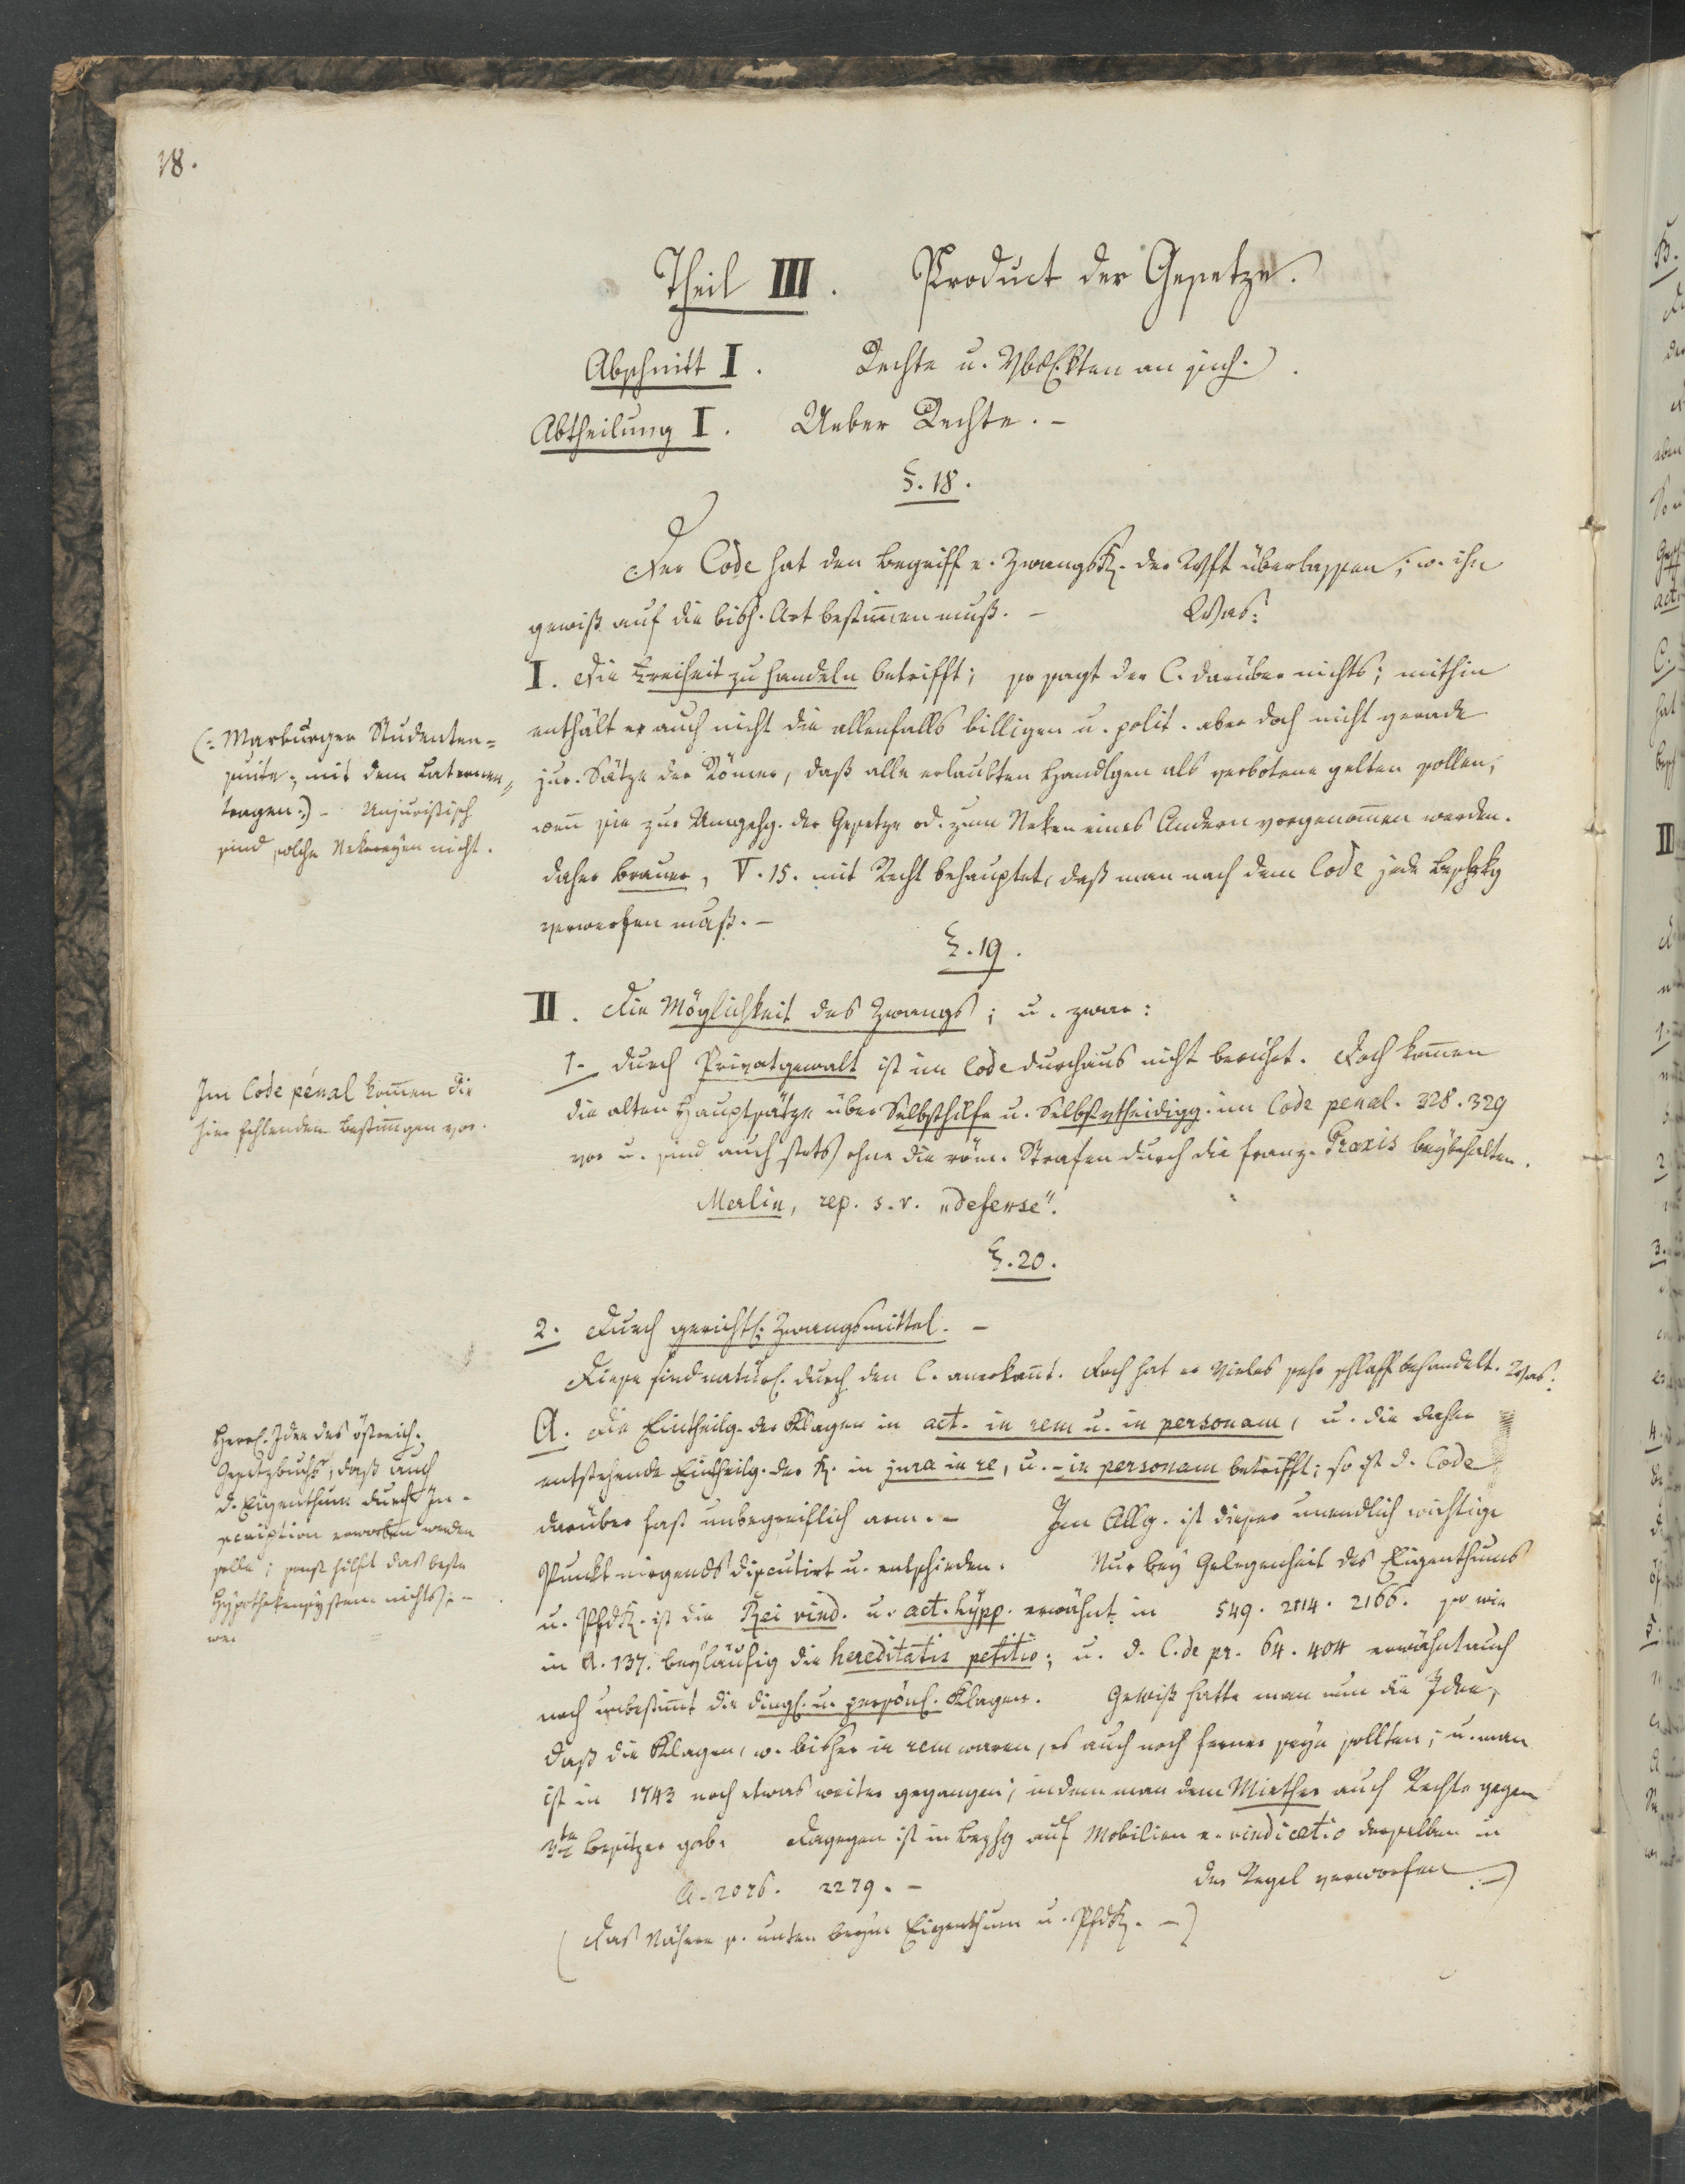 18.
Theil III. Product der Gesetze.
Abschnitt I. Rechte u. Vblkten an sich.
Abtheilung I. Ueber Rechte. -
§. 18.
Der Code hat den Begriff e. ZwangsR. der Wsft überlassen, w. ihn
gewiß auf die bish. Art bestimmen muß. - Was:
I. die Freiheit zu handeln betrifft; so sagt der C. darüber nichts; mithin
enthält er auch nicht die allenfalls billigen u. polit. aber doch nicht gerade
jur. Sätze der Römer, daß alle erlaubten Handlgen als verbotene gelten sollen,
wenn sie zur Umgehg. der Gesetze od. zum Neken eines Andern vorgenommen werden.
daher Brauer, V. 15. mit Recht behauptet, daß man nach dem Code jede Beschrkg
verwerfen muß. -
(: Marburger Studenten=
suite; mit dem Laternen=
tragen :) - Unjuristisch
sind solche Nekereyen nicht.
§. 19.
II. Die Möglichkeit des Zwangs; u. zwar:
1- durch Privatgewalt ist im Code durchaus nicht berührt. Doch kommen
die alten Hauptsätze über Selbsthilfe u. Selbstvtheidigg. im Code penal. 328. 329
vor u. sind auch stets ohne die röm. Strafen durch die franz. Praxis beybehalten.
Merlin, rep. s. v. „defense".
Im Code pénal kommen die
hier fehlenden Bestimmgen vor.
§. 20.
2. Durch gerichtl. Zwangsmittel. -
Diese sind natürl. durch den C. anerkannt. Doch hat er Vieles sehr schlaff behandelt. Was:
A. die Eintheilg. der Klagen in act. in rem u. in personam, u. die daher
entstehende Eintheilg. der R. in jura in re, u. - in personam betrifft; so ist d. Code
darüber fast unbegreiflich arm. - Im Allg. ist dieser unendlich wichtige
Punkt nirgends discutirt u. entschieden. Nur bey Gelegenheit des Eigenthums
u. PfdR. ist die Rei vind. u. act. hypp. erwähnt in 549. 2114. 2166. so wie
in A. 137. beyläufig die hereditatis petitio; u. d. C. de pr. 64. 404 erwähnt auch
noch unbestimmt die dingl. u. persönl. Klagen. Gewiß hatte man nun die Idee,
daß die Klagen, w. bisher in rem waren, es auch noch ferner seyn sollten; u. man
ist in 1743 noch etwas weiter gegangen; indem man dem Miether auch Rechte gegen
3te Besitzer gab. Dagegen ist in Bezhg auf Mobilien e. vindicatio derselben in
der Regel verworfen. -)
A. 2076. 2279. -
(Das Nähere s. unten beym Eigenthum u. PfdR. -)
Herrl. Idee des östreich.
Gesetzbuchs, daß auch
d. Eigenthum durch In-
scription erworben werden
solle; sonst hilft das beste
Hypothekensystem nichts. -